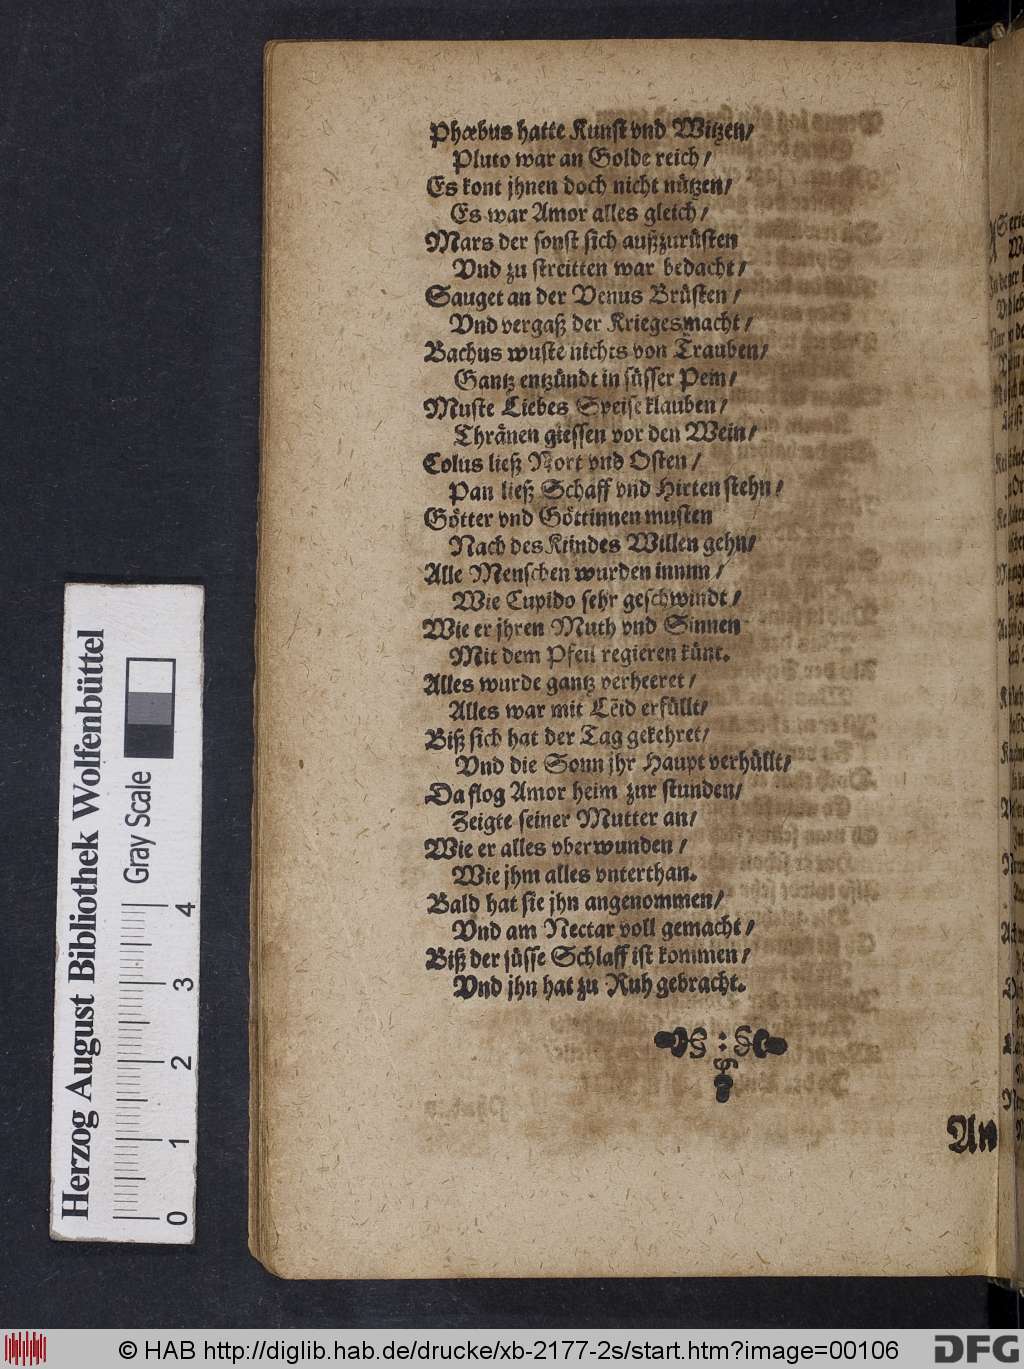 Phœbus hatte Kunst vnd Witzen/
Pluto war an Golde reich/
Es kont jhnen doch nicht nützen/
Es war Amor alles gleich/
Mars der sonst sich außzurüsten
Vnd zu streitten war bedacht/
Sauget an der Venus Brüsten/
Vnd vergaß der Kriegesmacht/
Bachus wuste nichts von Trauben/
Gantz entzündt in süsser Pein/
Muste Liebes Speise klauben/
Thränen giessen vor den Wein/
Eolus ließ Nort vnd Osten/
Pan ließ Schaff vnd Hirten stehn/
Götter vnd Göttinnen musten
Nach des Kindes Willen gehn/
Alle Menschen wurden innen/
Wie Cupido sehr geschwindt/
Wie er jhren Muth vnd Sinnen
Mit dem Pfeil regieren künt.
Alles wurde gantz verheeret/
Alles war mit Leid erfüllt/
Biß sich hat der Tag gekehret/
Vnd die Sonn jhr Haupt verhüllt/
Da flog Amor heim zur stunden/
Zeigte seiner Mutter an/
Wie er alles vberwunden/
Wie jhm alles vnterthan.
Bald hat sie jhn angenommen/
Vnd am Nectar voll gemacht/
Biß der süsse Schlaff ist kommen/
Vnd jhn hat zu Ruh gebracht.
An
Herzog August Bibliothek Wolfenbüttel
Gray Scale
0 1 2 3 4
© HAB http://diglib.hab.de/drucke/xb-2177-2s/start.htm?image=00106
DFG